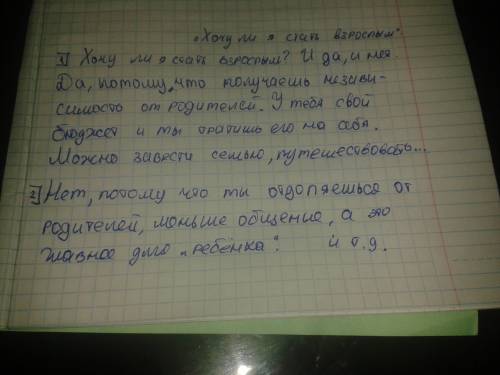 „Хочу ли я стать взрослым"
1) Хочу ли я стать взрослым? И да, и нет.
Да, потому, что получаешь незави-
симость от родителей. У тебя свой
бюджет и ты тратишь его на себя.
Можно завести семью, путешествовать...
2) Нет, потому что ты отдаляешься от
родителей, меньше общение, а это
главное для „ребёнка". и т.д.